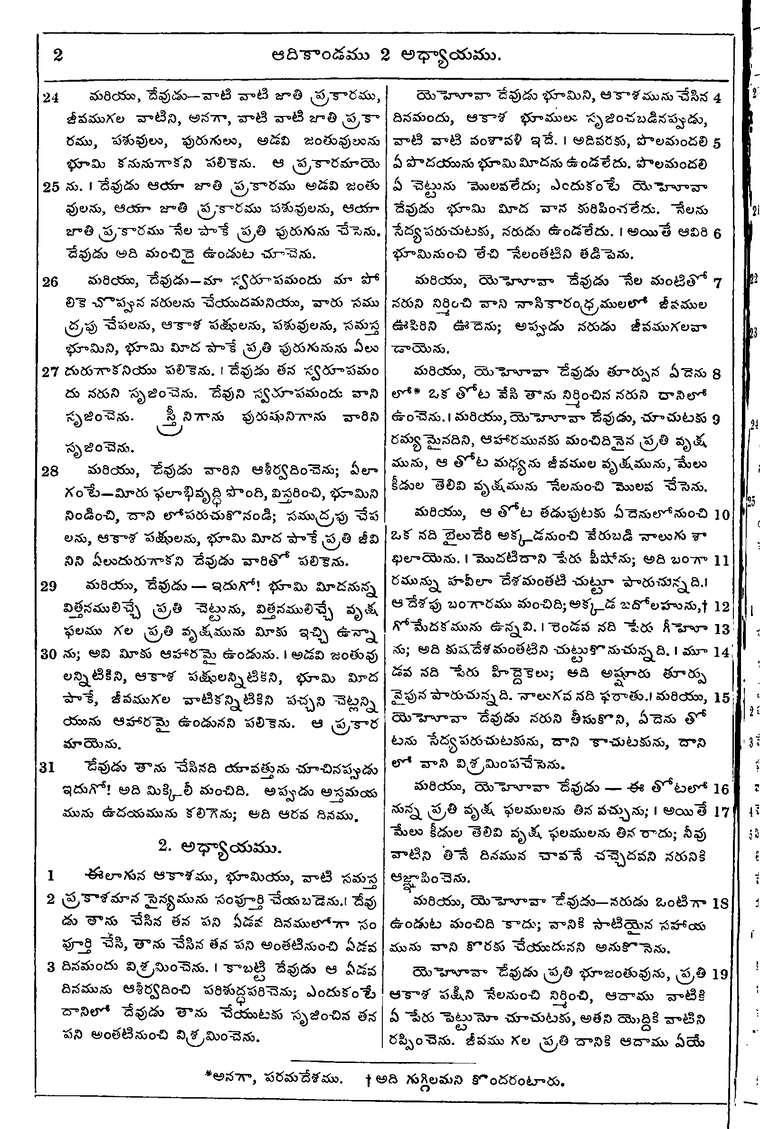 2
ఆదికాండము 2 అధ్యాయము.
24 మరియు, దేవుడు—వాటి వాటి జాతి ప్రకారము,
జీవముగల వాటిని, అనగా, వాటి వాటి జాతి ప్రకా
రము, పశువులు, పురుగులు, అడవి జంతువులును
భూమి కనునుగాకని పలికెను. ఆ ప్రకారమాయె
25 ను. । దేవుడు ఆయా జాతి ప్రకారము అడవి జంతు
వులను, ఆయా జాతి ప్రకారము పశువులను, ఆయా
జాతి ప్రకారము నేల పాకే ప్రతి పురుగును చేసెను.
దేవుడు అది మంచిదై ఉండుట చూచెను.
26 మరియు, దేవుడు—మా స్వరూపమందు మా పో
లికె చొప్పున నరులను చేయుదమనియు, వారు సము
ద్రపు చేపలను, ఆకాశ పక్షులను, పశువులను, సమస్త
భూమిని, భూమి మీద పాకే ప్రతి పురుగునును ఏలు
27 దురుగాకనియు పలికెను. । దేవుడు తన స్వరూపమం
దు నరుని సృజించెను. దేవుని స్వరూపమందు వాని
సృజించెను. స్త్రీనిగాను పురుషునిగాను వారిని
సృజించెను.
28 మరియు, దేవుడు వారిని ఆశీర్వదించెను; ఏలా
గంటే—మీరు ఫలాభివృద్ధి పొంది, విస్తరించి, భూమిని
నిండించి, దాని లోపరుచుకొనండి; సముద్రపు చేప
లను, ఆకాశ పక్షులను, భూమి మీద పాకే ప్రతి జీవి
నిని ఏలుదురుగాకని దేవుడు వారితో పలికెను.
29 మరియు, దేవుడు — ఇదుగో! భూమి మీదనున్న
విత్తనములిచ్చే ప్రతి చెట్టును, విత్తనములిచ్చే వృక్ష
ఫలము గల ప్రతి వృక్షమును మీకు ఇచ్చి ఉన్నా
30 ను; అవి మీకు ఆహారమై ఉండును. । అడవి జంతువు
లన్నిటికిని, ఆకాశ పక్షులన్నిటికిని, భూమి మీద
పాకే, జీవముగల వాటికన్నిటికిని పచ్చని చెట్లన్ని
యును ఆహారమై ఉండునని పలికెను. ఆ ప్రకార
మాయెను.
31 దేవుడు తాను చేసినది యావత్తును చూచినప్పుడు
ఇదుగో! అది మిక్కిలీ మంచిది. అప్పుడు అస్తమయ
మును ఉదయమును కలిగెను; అది ఆరవ దినము.
2. అధ్యాయము.
1 ఈలాగున ఆకాశము, భూమియు, వాటి సమస్త
2 ప్రకాశమాన సైన్యమును సంపూర్తి చేయబడెను. । దేవు
డు తాను చేసిన తన పని ఏడవ దినములోగా సం
పూర్తి చేసి, తాను చేసిన తన పని అంతటినుంచి ఏడవ
3 దినమందు విశ్రమించెను. । కాబట్టి దేవుడు ఆ ఏడవ
దినమును ఆశీర్వదించి పరిశుద్ధపరిచెను; ఎందుకంటే
దానిలో దేవుడు తాను చేయుటకు సృజించిన తన
పని అంతటినుంచి విశ్రమించెను.
యెహోవా దేవుడు భూమిని, ఆకాశమును చేసిన 4
దినమందు, ఆకాశ భూములు సృజించబడినప్పుడు,
వాటి వాటి వంశావళి ఇదే. । అదివరకు, పొలమందలి 5
ఏ పొదయును భూమి మీదను ఉండలేదు. పొలమందలి
ఏ చెట్టును మొలవలేదు; ఎందుకంటే యెహోవా
దేవుడు భూమి మీద వాన కురిపించలేదు. నేలను
సేద్యపరుచుటకు, నరుడు ఉండలేదు. । అయితే ఆవిరి 6
భూమినుంచి లేచి నేలంతటిని తడిపెను.
మరియు, యెహోవా దేవుడు నేల మంటితో 7
నరుని నిర్మించి వాని నాసికారంధ్రములలో జీవముల
ఊపిరిని ఊదెను; అప్పుడు నరుడు జీవముగలవా
డాయెను.
మరియు, యెహోవా దేవుడు తూర్పున ఏదెను 8
లో* ఒక తోట వేసి తాను నిర్మించిన నరుని దానిలో
ఉంచెను. । మరియు, యెహోవా దేవుడు, చూచుటకు 9
రమ్యమైనదిని, ఆహారమునకు మంచిదినైన ప్రతి వృక్ష
మును, ఆ తోట మధ్యను జీవముల వృక్షమును, మేలు
కీడుల తెలివి వృక్షమును నేలనుంచి మొలవ చేసెను.
మరియు, ఆ తోట తడుపుటకు ఏదెనులోనుంచి 10
ఒక నది బైలుదేరి అక్కడనుంచి వేరుబడి నాలుగు శా
ఖలాయెను. । మొదటిదాని పేరు పీషోను; అది బంగా 11
రమున్న హవీలా దేశమంతటి చుట్టూ పారుచున్నది. ।
ఆ దేశపు బంగారము మంచిది; అక్కడ బదోలహును,† 12
గోమేదకమును ఉన్నవి. । రెండవ నది పేరు గీహో 13
ను; అది కుషదేశమంతటిని చుట్టుకొనుచున్నది. । మూ 14
డవ నది పేరు హిద్దెకెలు; అది అష్షూరు తూర్పు
వైపున పారుచున్నది. నాలుగవ నది ఫరాతు. । మరియు, 15
యెహోవా దేవుడు నరుని తీసుకొని, ఏదెను తో
టను సేద్యపరుచుటకును, దాని కాచుటకును, దాని
లో వాని విశ్రమింపచేసెను.
మరియు, యెహోవా దేవుడు — ఈ తోటలో 16
నున్న ప్రతి వృక్ష ఫలములను తిన వచ్చును; । అయితే 17
మేలు కీడుల తెలివి వృక్ష ఫలములను తిన రాదు; నీవు
వాటిని తినే దినమున చావనే చచ్చెదవని నరునికి
ఆజ్ఞాపించెను.
మరియు, యెహోవా దేవుడు—నరుడు ఒంటిగా 18
ఉండుట మంచిది కాదు; వానికి సాటియైన సహాయ
మును వాని కొరకు చేయుదునని అనుకొనెను.
యెహోవా దేవుడు ప్రతి భూజంతువును, ప్రతి 19
ఆకాశ పక్షిని నేలనుంచి నిర్మించి, ఆదాము వాటికి
ఏ పేరు పెట్టునో చూచుటకు, అతని యొద్దికే వాటిని
రప్పించెను. జీవము గల ప్రతి దానికి ఆదాము ఏయే
*అనగా, పరమదేశము. † అది గుగ్గిలమని కొందరంటారు.